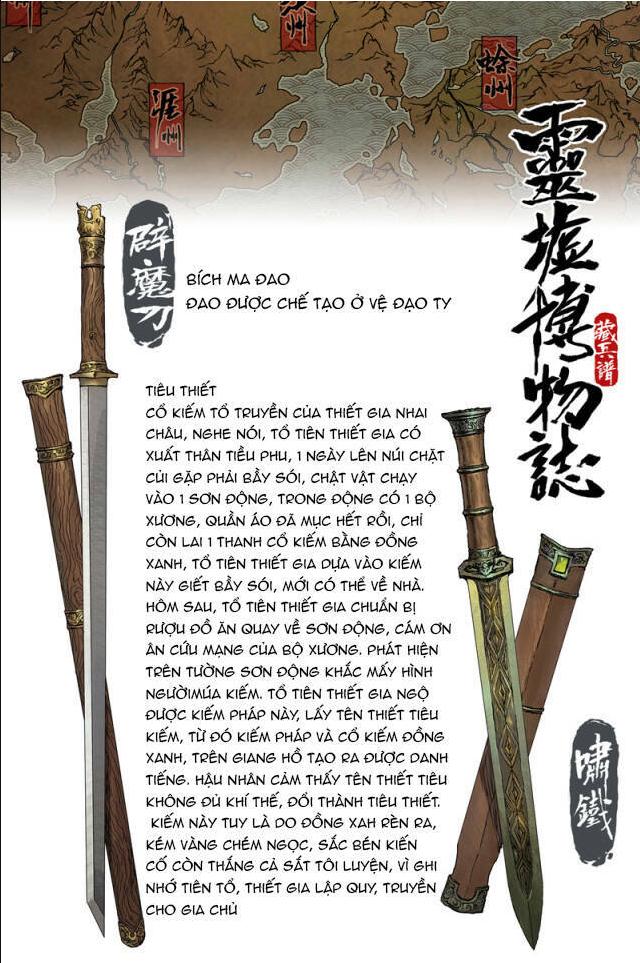 涯州
蜍州
靈墟博物誌
藏兵譜
辟魔刀
BÍCH MA ĐAO
ĐAO ĐƯỢC CHẾ TẠO Ở VỆ ĐẠO TY
TIÊU THIẾT
CỔ KIẾM TỔ TRUYỀN CỦA THIẾT GIA NHAI
CHÂU, NGHE NÓI, TỔ TIÊN THIẾT GIA CÓ
XUẤT THÂN TIỀU PHU, 1 NGÀY LÊN NÚI CHẶT
CỦI GẶP PHẢI BẦY SÓI, CHẬT VẬT CHẠY
VÀO 1 SƠN ĐỘNG, TRONG ĐỘNG CÓ 1 BỘ
XƯƠNG, QUẦN ÁO ĐÃ MỤC HẾT RỒI, CHỈ
CÒN LẠI 1 THANH CỔ KIẾM BẰNG ĐỒNG
XANH, TỔ TIÊN THIẾT GIA DỰA VÀO KIẾM
NÀY GIẾT BẦY SÓI, MỚI CÓ THỂ VỀ NHÀ.
HÔM SAU, TỔ TIÊN THIẾT GIA CHUẨN BỊ
RƯỢU ĐỒ ĂN QUAY VỀ SƠN ĐỘNG, CÁM ƠN
ÂN CỨU MẠNG CỦA BỘ XƯƠNG. PHÁT HIỆN
TRÊN TƯỜNG SƠN ĐỘNG KHẮC MẤY HÌNH
NGƯỜIMÚA KIẾM. TỔ TIÊN THIẾT GIA NGỘ
ĐƯỢC KIẾM PHÁP NÀY, LẤY TÊN THIẾT TIÊU
KIẾM, TỪ ĐÓ KIẾM PHÁP VÀ CỔ KIẾM ĐỒNG
XANH, TRÊN GIANG HỒ TẠO RA ĐƯỢC DANH
TIẾNG. HẬU NHÂN CẢM THẤY TÊN THIẾT TIÊU
KHÔNG ĐỦ KHÍ THẾ, ĐỔI THÀNH TIÊU THIẾT.
KIẾM NÀY TUY LÀ DO ĐỒNG XAH RÈN RA,
KÉM VÀNG CHÉM NGỌC, SẮC BÉN KIẾN
CỐ CÒN THẮNG CẢ SẮT TÔI LUYỆN, VÌ GHI
NHỚ TIÊN TỔ, THIẾT GIA LẬP QUY, TRUYỀN
CHO GIA CHỦ
嘯鐵